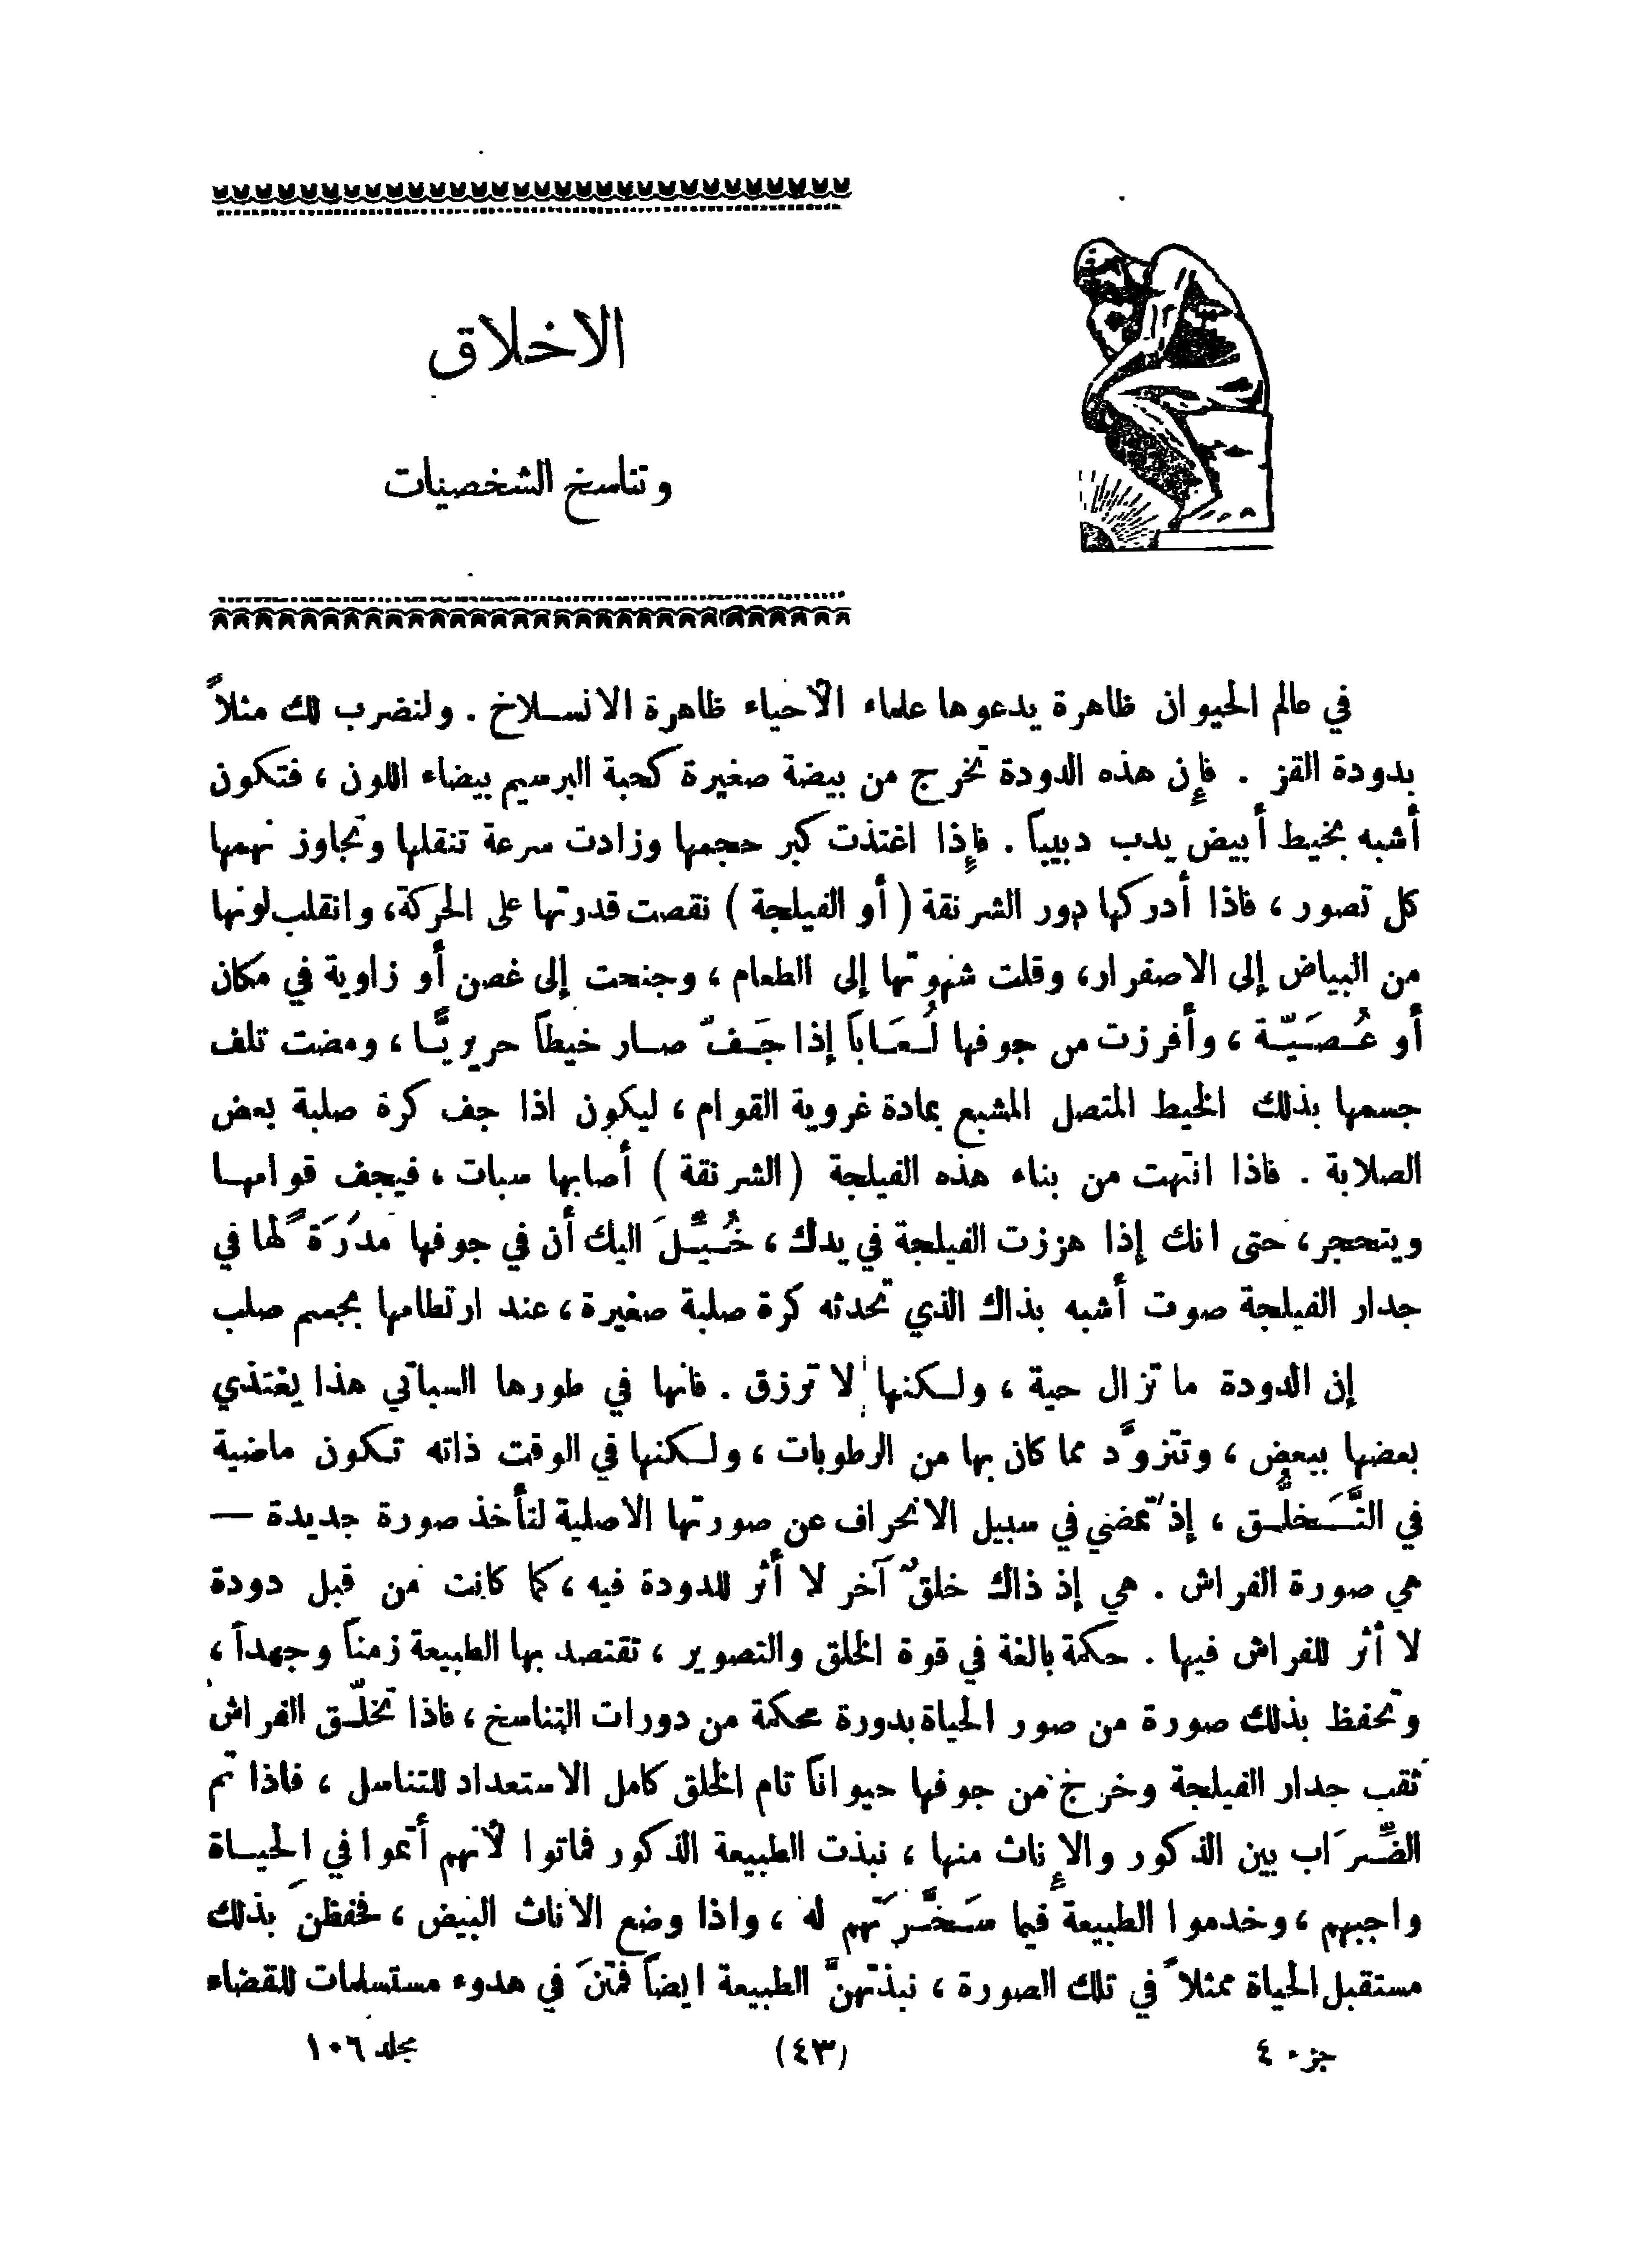 الاخلاق
وتناسخ الشخصيات
في عالم الحيوان ظاهرة يدعوها علماء الأحياء ظاهرة الانسلاخ . ولنضرب لك مثلاً
بدودة القز . فإن هذه الدودة تخرج من بيضة صغيرة كحبة البرسيم بيضاء اللون ، فتكون
أشبه بخيط أبيض يدب دبيباً . فإذا اغتذت كبر حجمها وزادت سرعة تنقلها وتجاوز نهمها
كل تصور ، فاذا أدركها دور الشرنقة ( أو الفيلجة ) نقصت قدرتها على الحركة، وانقلب لونها
من البياض إلى الاصفرار، وقلت شهوتها إلى الطعام ، وجنحت إلى غصن أو زاوية في مكان
أو عُصَيّة ، وأفرزت من جوفها لُعَاباً إذا جَفّ صار خيطاً حريريًّا ، ومضت تلف
جسمها بذلك الخيط المتصل المشبع بمادة غروية القوام ، ليكون اذا جف كرة صلبة بعض
الصلابة . فاذا انتهت من بناء هذه الفيلجة ( الشرنقة ) أصابها سبات ، فيجف قوامها
ويتحجر، حتى انك إذا هززت الفيلجة في يدك ، خُيِّلَ اليك أن في جوفها مدَرَةً لها في
جدار الفيلجة صوت أشبه بذاك الذي تحدثه كرة صلبة صغيرة ، عند ارتطامها بجسم صلب
إن الدودة ما تزال حية ، ولكنها لا ترزق . فانها في طورها السباتي هذا يغتذي
بعضها ببعضٍ ، وتتزوَّد مما كان بها من الرطوبات ، ولكنها في الوقت ذاته تكون ماضية
في التَّخلُّق ، إذ تمضي في سبيل الانحراف عن صورتها الاصلية لتأخذ صورة جديدة —
هي صورة الفراش . هي إذ ذاك خلقٌ آخر لا أثر للدودة فيه ، كما كانت من قبل دودة
لا أثر للفراش فيها . حكمة بالغة في قوة الخلق والتصوير ، تقتصد بها الطبيعة زمناً وجهداً ،
وتحفظ بذلك صورة من صور الحياة بدورة محكمة من دورات التناسخ ، فاذا تخلّق الفراش
ثقب جدار الفيلجة وخرج من جوفها حيواناً تام الخلق كامل الاستعداد للتناسل ، فاذا تم
الضِّرَاب بين الذكور والإناث منها ، نبذت الطبيعة الذكور فماتوا لأنهم أتموا في الحياة
واجبهم ، وخدموا الطبيعة فيما سَخَّرَتهم له ، واذا وضع الاناث البيض ، فحفظنَ بذلك
مستقبل الحياة ممثلاً في تلك الصورة ، نبذتهنَّ الطبيعة ايضاً فمتنَ في هدوء مستسلمات للقضاء
جزء ٤ (٤٣) مجلد ١٠٦